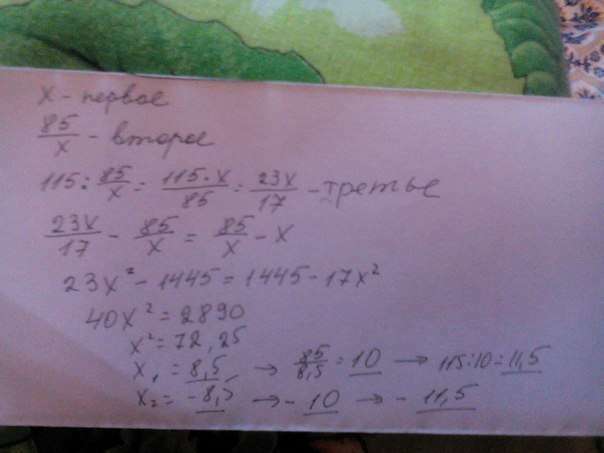 x - первое
85/x - второе
115 : 85/x = 115·x/85 = 23x/17 - третье
23x/17 - 85/x = 85/x - x
23x² - 1445 = 1445 - 17x²
40x² = 2890
x² = 72,25
x₁ = 8,5 → 85/8,5 = 10 → 115:10 = 11,5
x₂ = -8,5 → -10 → -11,5